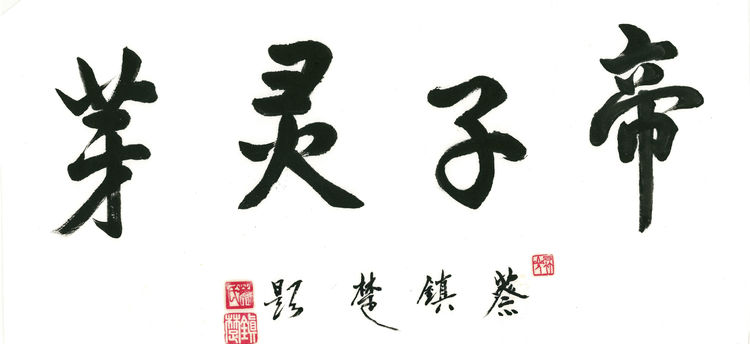 帝子灵芽
蔡鎮楚题